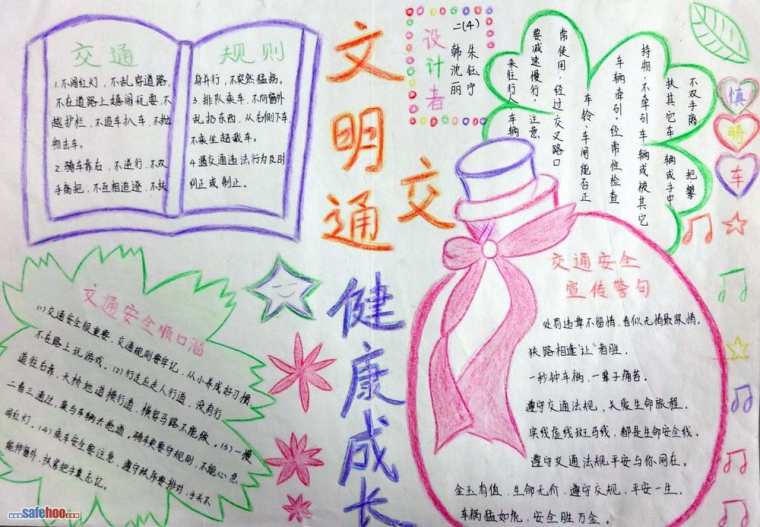 交通 规则
1、不闯红灯，不乱穿道路，
不在道路上嬉闹玩耍，不
越护栏，不追车扒车，不抛
物击车。
2、骑车靠右，不逆行，不双
手离把，不互相追逐，不扶
身并行，不突然猛拐。
3、排队乘车，不向窗外
乱扔东西，从右侧下车
不乘坐超载车。
4、遇交通违法行为及时
纠正或制止。
文明交通
健康成长
设计者
二(4)
朱钰宁
韩沈丽
不双手离把
扶其它车辆或手中
持物，不牵引车辆或被其它
车辆牵引，经常性检查
车铃、车闸能否正
常使用，经过交叉路口
要减速慢行，注意
来往行人、车辆
慎
骑
车
交通安全顺口溜
(1)交通安全很重要，交通规则要牢记，从小养成好习惯
不在路上玩游戏。(2)行走应走人行道，没有行
道往右靠，天桥地道横行道，横穿马路不能做。(3)一慢
二看三通过，莫与车辆去抢道，骑车更要守规则，不能心急
闯红灯。(4)乘车安全要注意，遵守秩序要排队，手头不
能伸窗外，扶紧把手莫忘记。
交通安全
宣传警句
处罚违章不留情，看似无情最深情。
狭路相逢"让"者胜。
一秒钟车祸，一辈子痛苦。
遵守交通法规，关爱生命旅程。
实线虚线斑马线，都是生命安全线。
遵守交通法规，平安与你同在。
金玉有值，生命无价，遵守交规，平安一生。
车辆猛如虎，安全胜万金。
...safehoo...
.com